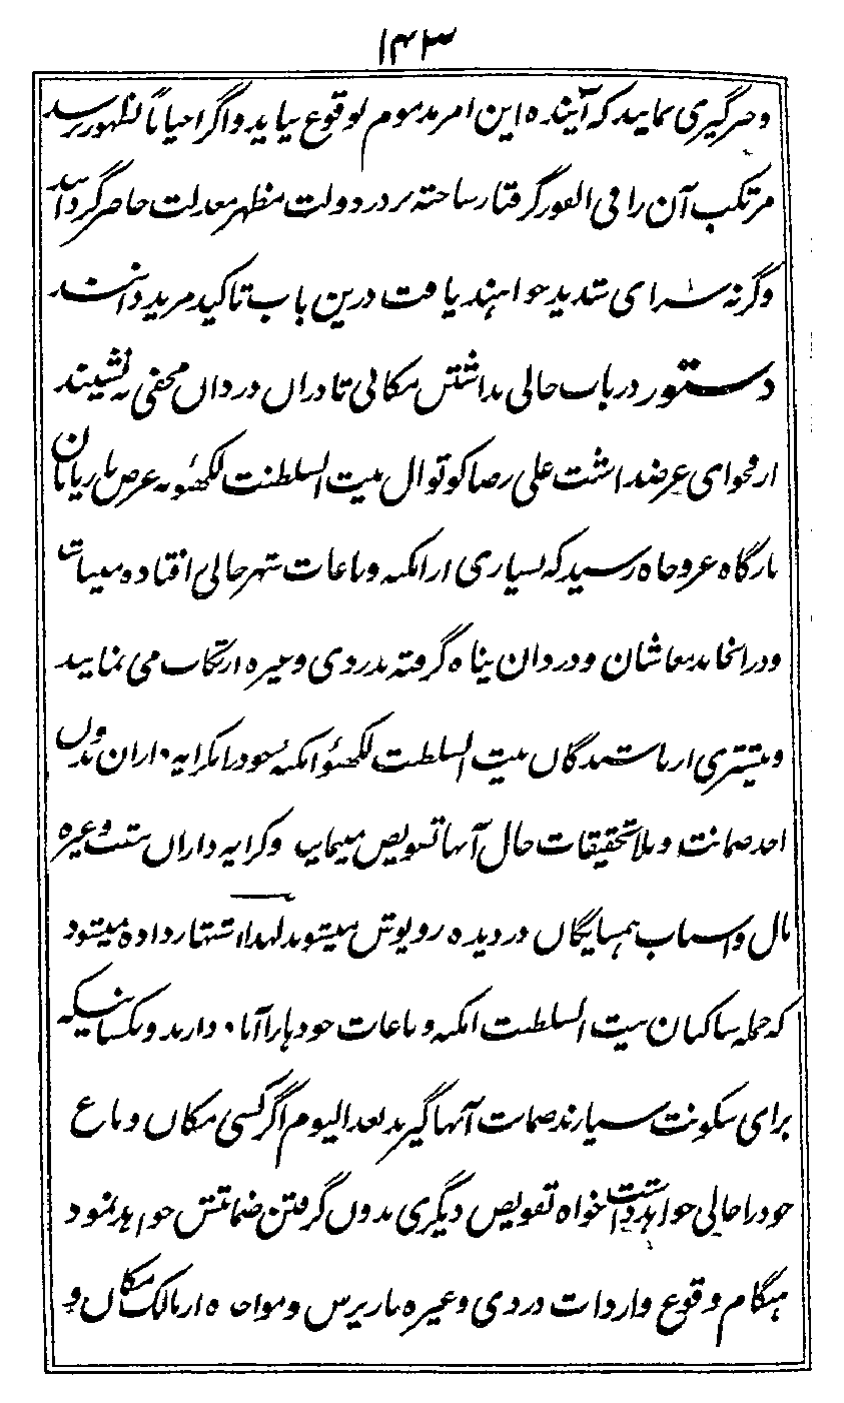 ۱۴۳
و خبرگیری نمایند که آینده این امر مذموم بوقوع نیاید و اگر احیاناً بظهور برسد
مرتکب آن را فی الفور گرفتار ساخته بر در دولت مظهر معدلت حاضر گردانند
وگرنه سزای شدید خواهند یافت درین باب تاکید مزید دانند
دستور در باب خالی نداشتن مکانی تا دران دزدان مخفی نه نشینند
از فحوای عرضداشت علی رضا کوتوال بیت السلطنت لکهنؤ بعرض باریابان
بارگاه عز و جاه رسید که بسیاری از امکنه و باغات شهر خالی افتاده میباشد
و درانجا بدمعاشان و دزدان پناه گرفته بدزدی و غیره ارتکاب می نمایند
و بیشتری از باشندگان بیت السلطنت لکهنؤ امکنه خود را بکرایه داران بدون
اخذ ضمانت و بلا تحقیقات حال آنها تفویض مینمایند و کرایه داران شب و غیره
مال و اسباب همسایگان دزدیده روپوش میشوند لهذا اشتهار داده میشود
که جمله ساکنان بیت السلطنت امکنه و باغات خود ها را آباد دارند و بکسانیکه
برای سکونت سپارند ضمانت آنها گیرند بعد الیوم اگر کسی مکان و باغ
خود را خالی خواهد داشت خواه تفویض دیگری بدون گرفتن ضمانتش خواهد نمود
هنگام وقوع واردات دزدی و غیره باز پرس و مواخذه از مالک مکان و